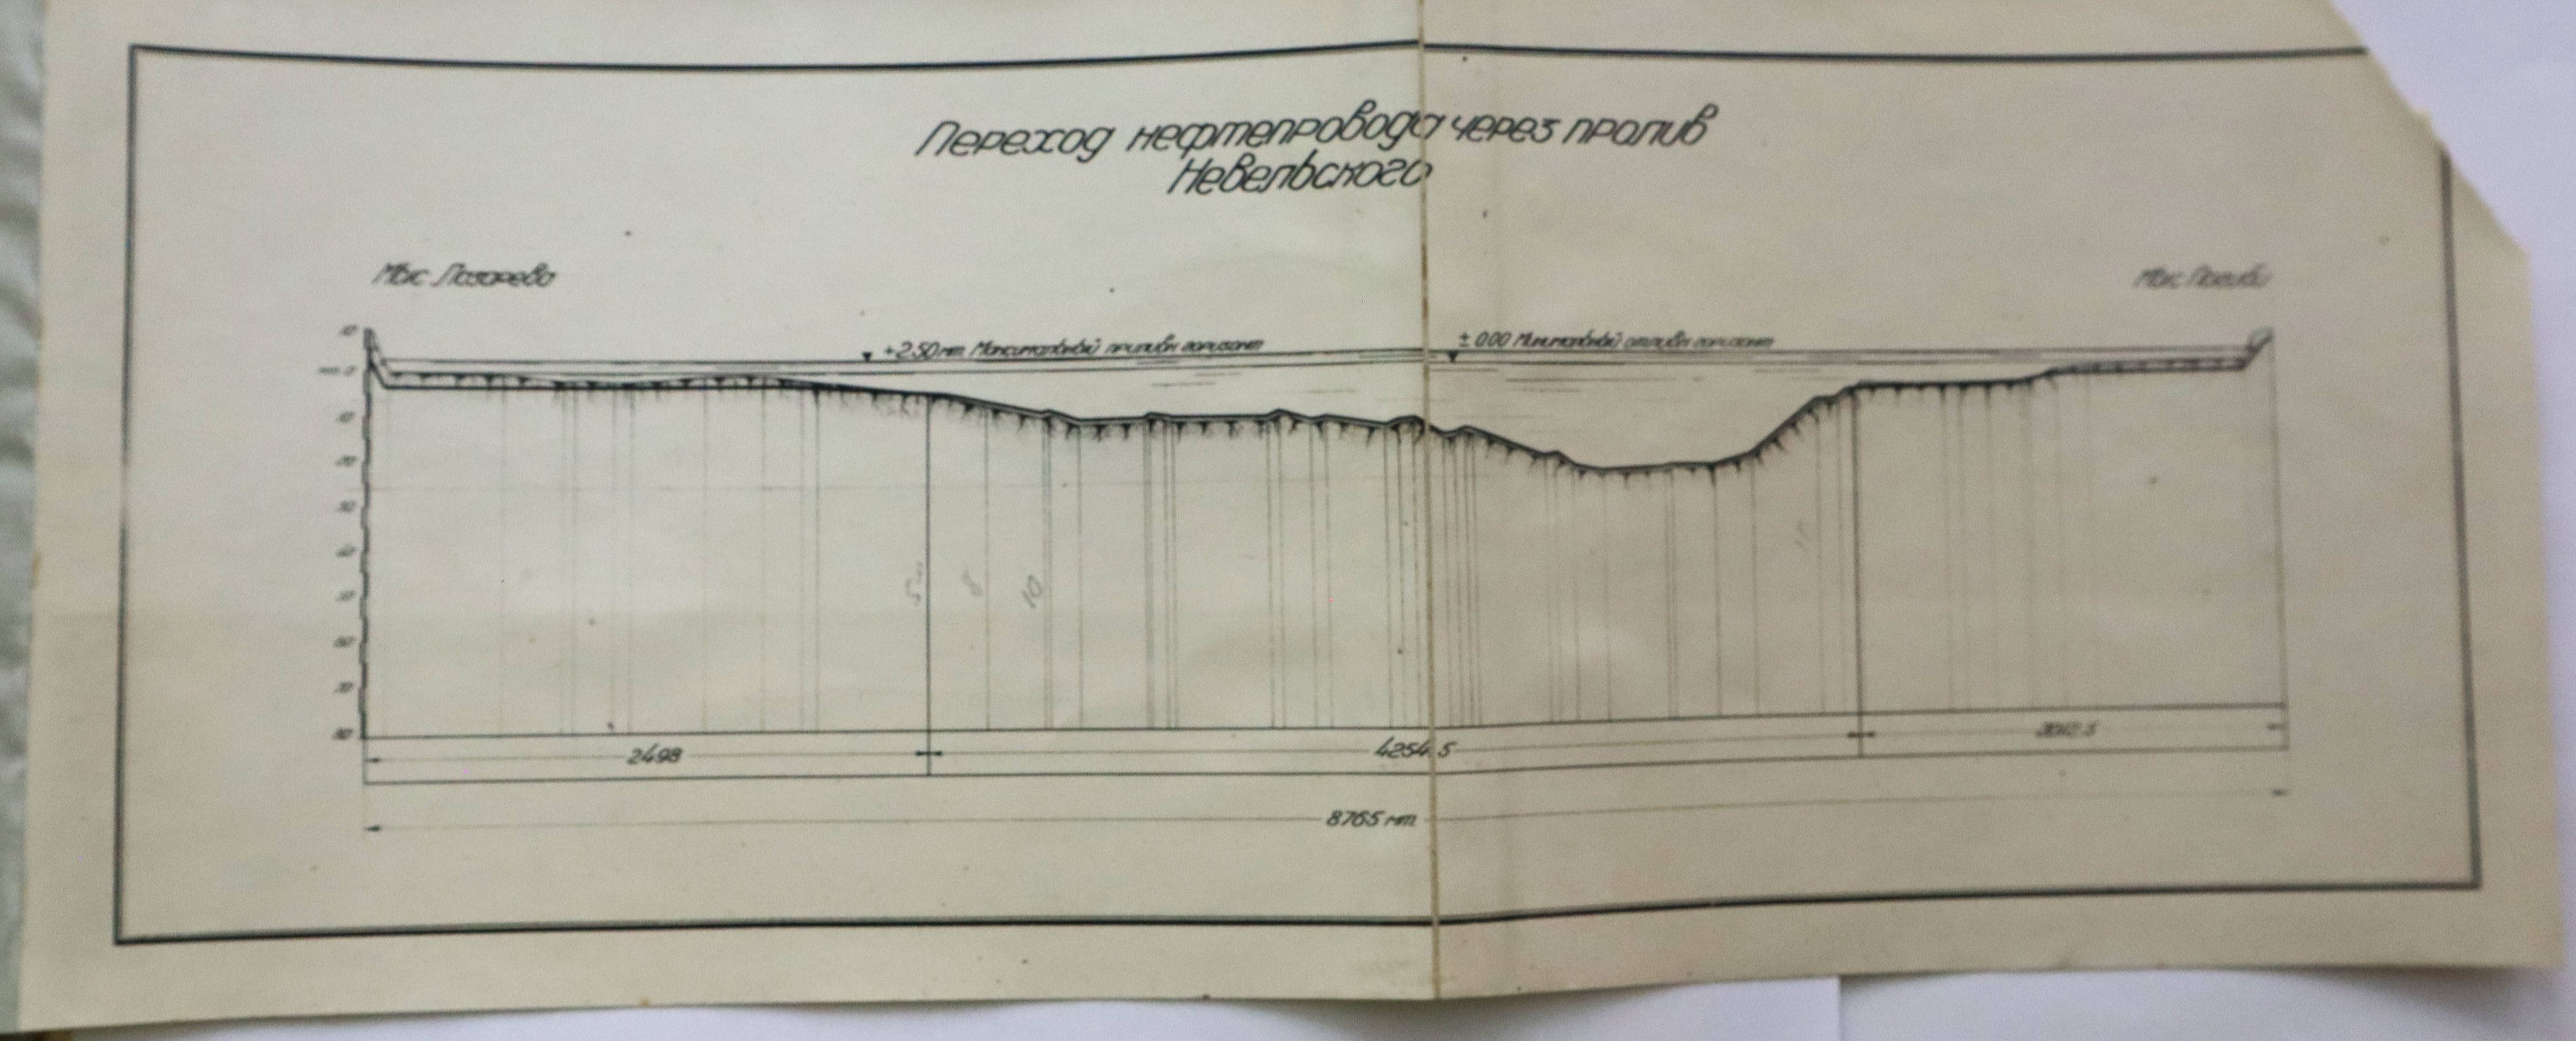 Переход нефтепровода через пролив
Невельского
Мыс Лазарева
Мыс Погиби
+2.50 mm Максимальный приливн горизонт
± 0.00 Минимальный отливн горизонт
10
10
20
30
40
50
60
70
80
5
8
10
2498
4254.5
2012.5
8765 mm